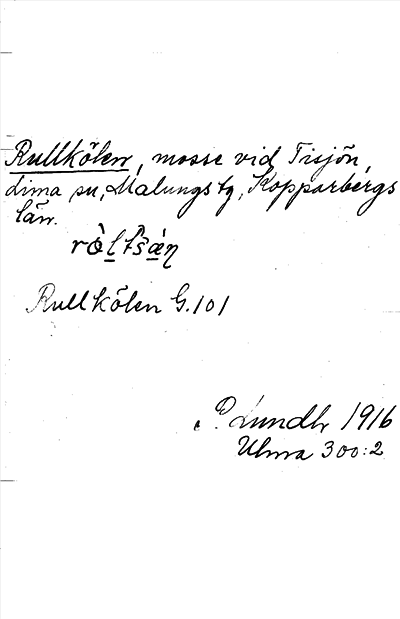 Rullkölen, mosse vid Tisjön,
Lima sn, Malungs tg, Kopparbergs
län.
Rullkölen G.101
P. Lundbr 1916
Ulma 300:2